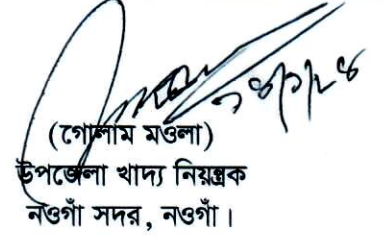 (গোলাম মওলা)
উপজেলা খাদ্য নিয়ন্ত্রক
নওগাঁ সদর, নওগাঁ।